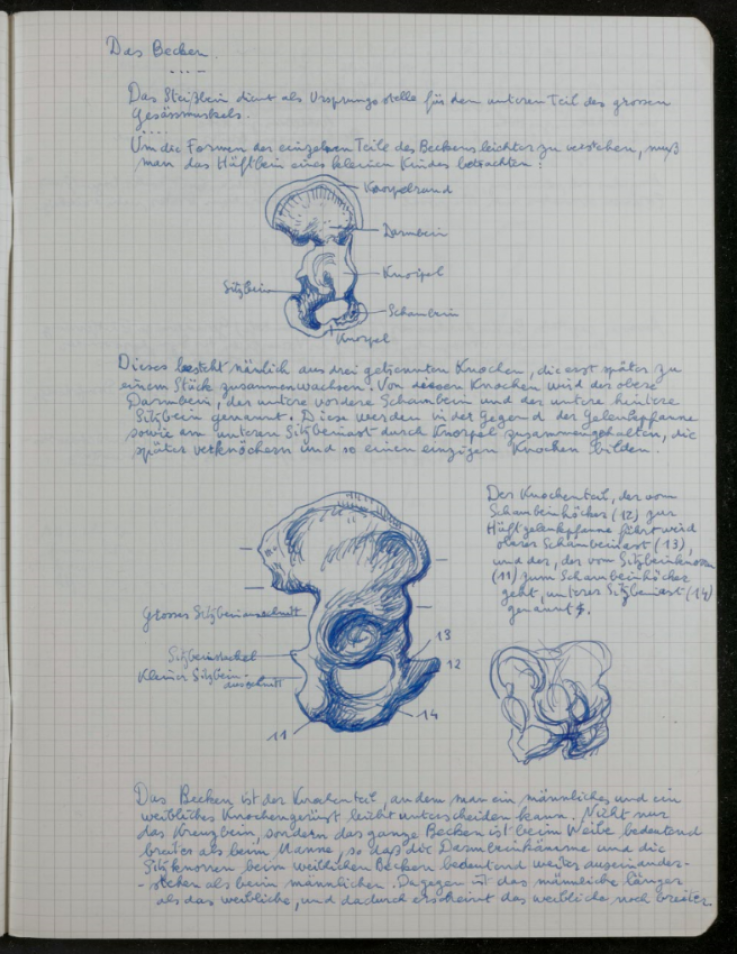 Das Becken.
Das Steißbein dient als Ursprungsstelle für den unteren Teil des grossen
Gesässmuskels.
Um die Formen der einzelnen Teile des Beckens leichter zu verstehen, muß
man das Hüftbein eines kleinen Kindes betrachten:
Knorpelrand
Darmbein
Knorpel
Sitzbein
Schambein
Knorpel
Dieses besteht nämlich aus drei getrennten Knochen, die erst später zu
einem Stück zusammenwachsen. Von diesen Knochen wird der obere
Darmbein, der untere vordere Schambein und der untere hintere
Sitzbein genannt. Diese werden in der Gegend der Gelenkpfanne
sowie am unteren Sitzbeinast durch Knorpel zusammengehalten, die
später verknöchern und so einen einzigen Knochen bilden.
Der Knochenteil, der vom
Schambeinhöcker (12) zur
Hüftgelenkpfanne führt wird
oberer Schambeinast (13),
und der, der vom Sitzbeinknorren
(11) zum Schambeinhöcker
geht, unterer Sitzbeinast (14)
genannt.
Grosser Sitzbeinausschnitt
Sitzbeinstachel
Kleiner Sitzbein-
ausschnitt
13
12
14
11
Das Becken ist der Knochenteil, an dem man ein männliches und ein
weibliches Knochengerüst leicht unterscheiden kann. Nicht nur
das Kreuzbein, sondern das ganze Becken ist beim Weibe bedeutend
breiter als beim Manne, so daß die Darmbeinkämme und die
Sitzknorren beim weiblichen Becken bedeutend weiter auseinander-
-stehen als beim männlichen. Dagegen ist das männliche länger
als das weibliche, und dadurch erscheint das weibliche noch breiter.